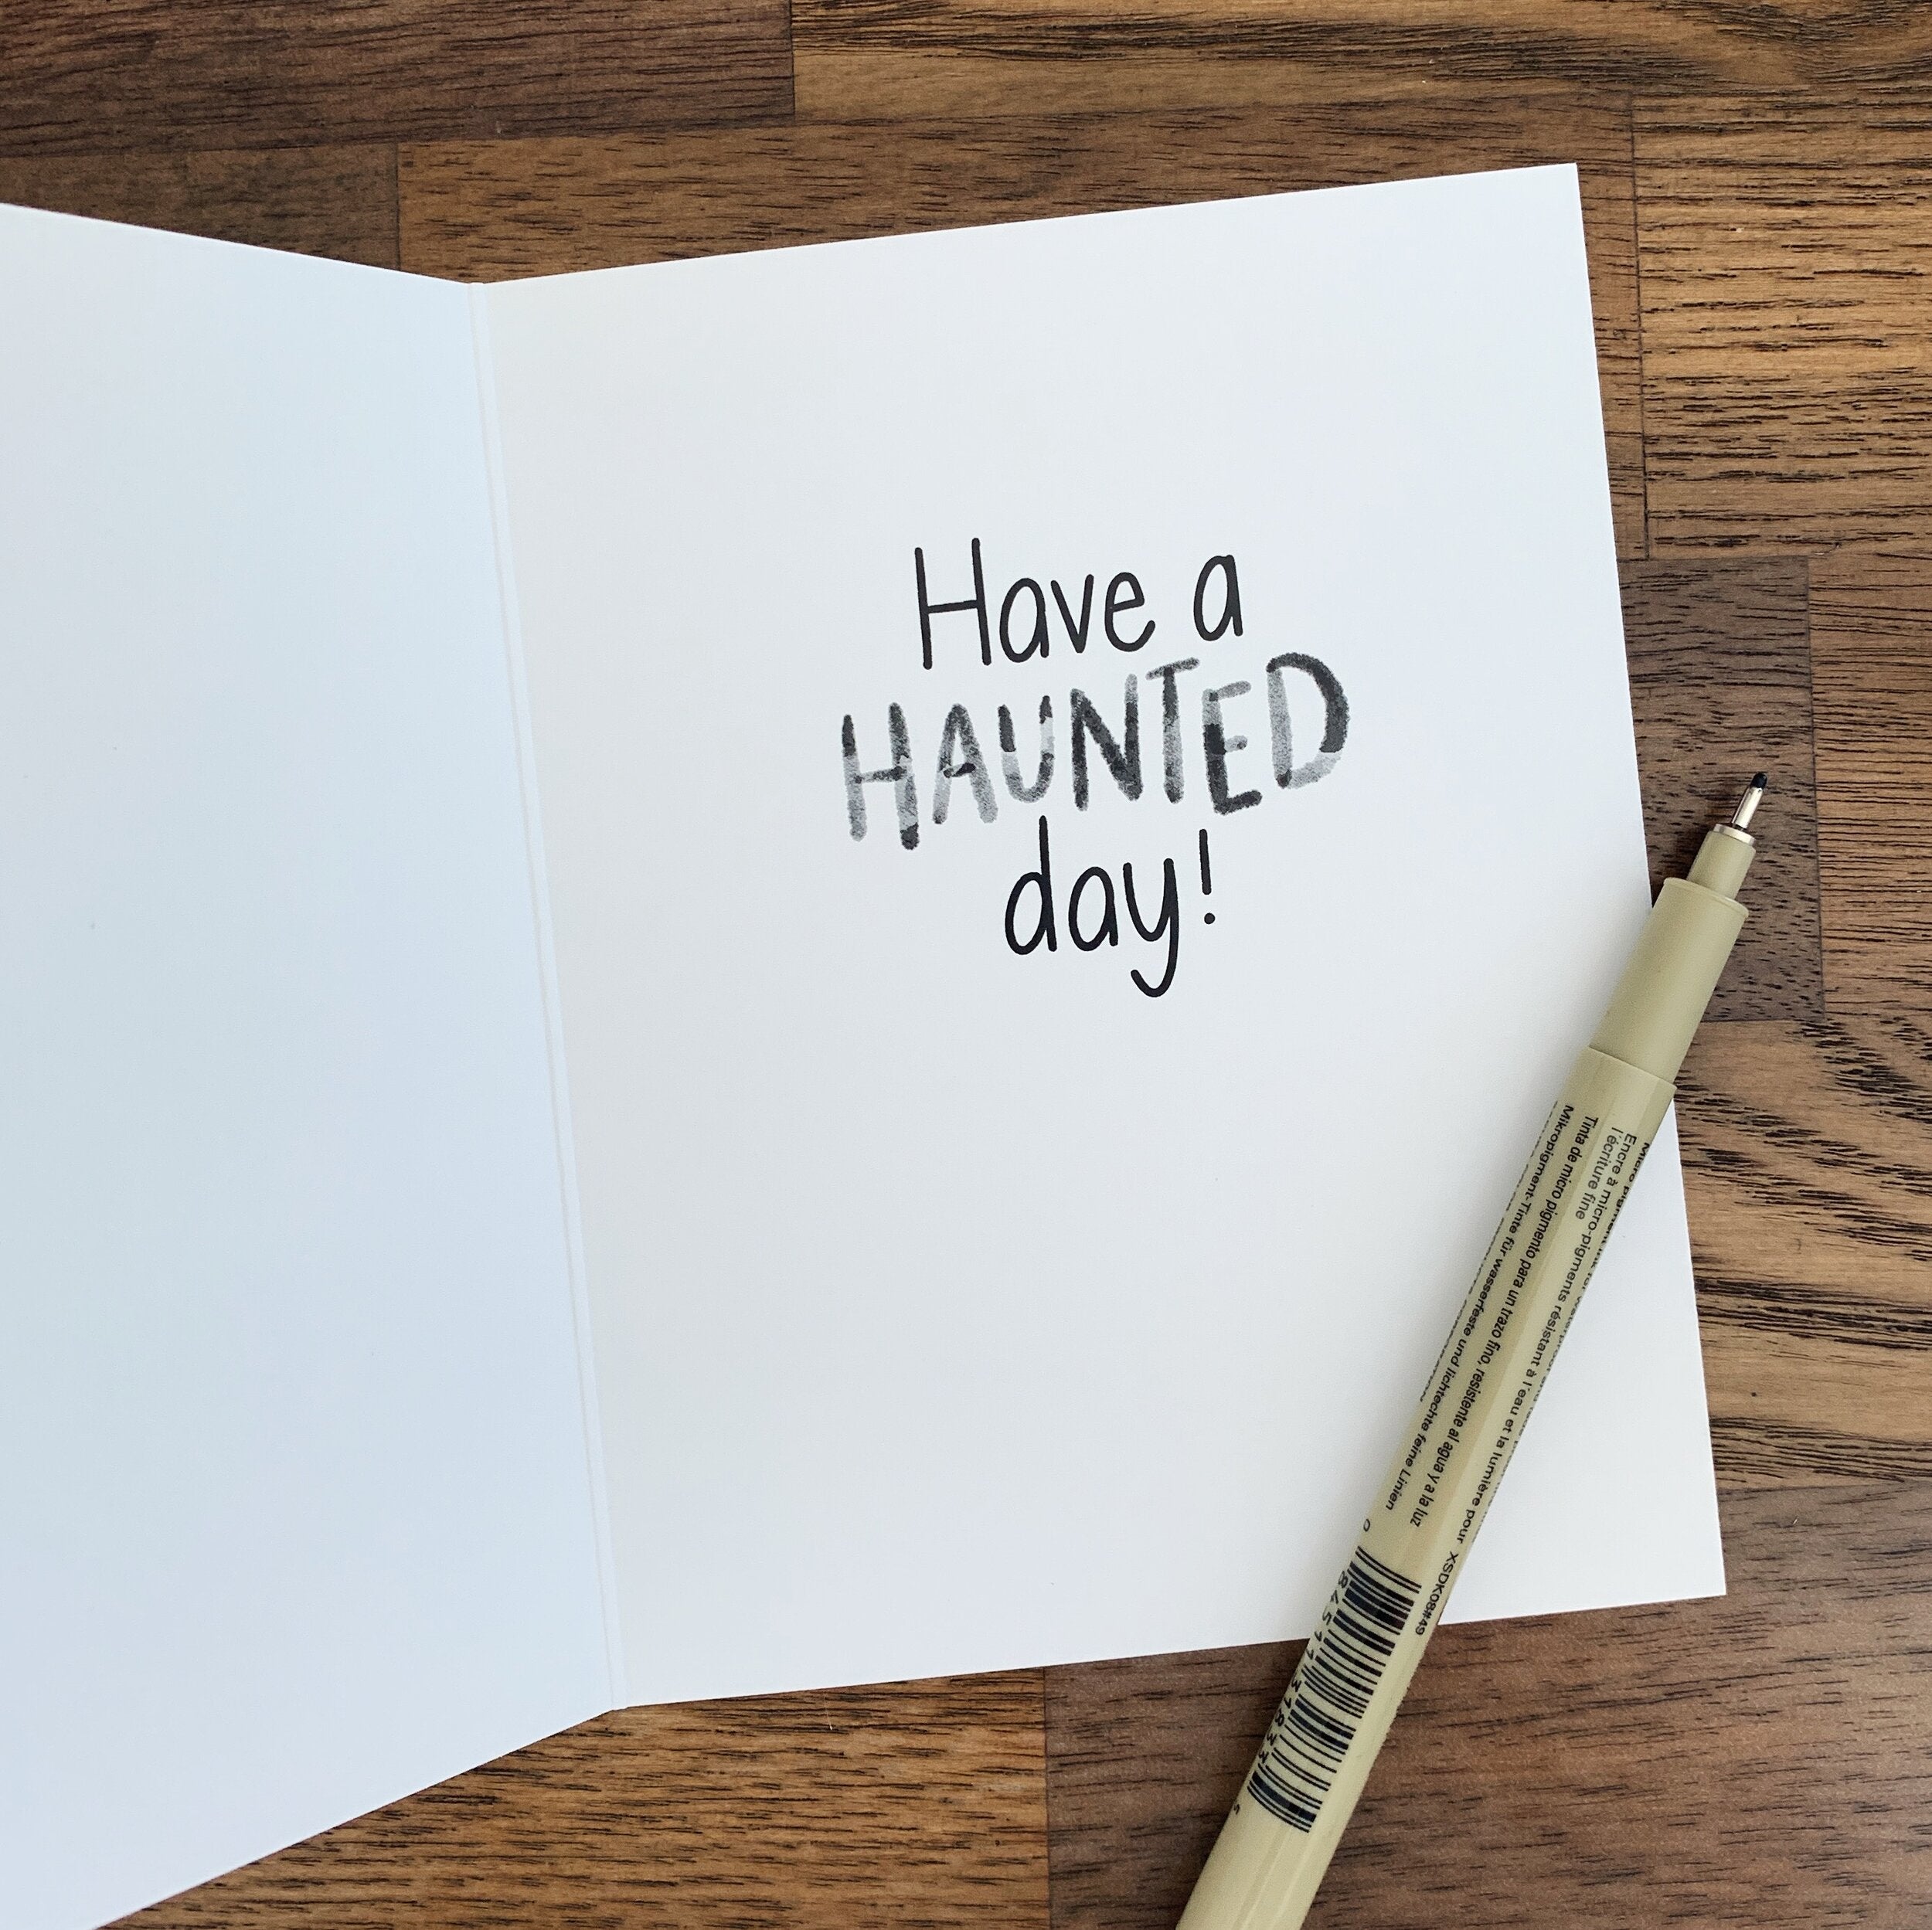 Have a
HAUNTED
day!
Encre à micro-pigments résistant à l'eau et la lumière pour
l'écriture fine
Tinta de micro pigmento para un trazo fino, resistente al agua y a la luz
Mikropigment-Tinte für wasserfeste und lichtechte feine Linien
XSDK08#49